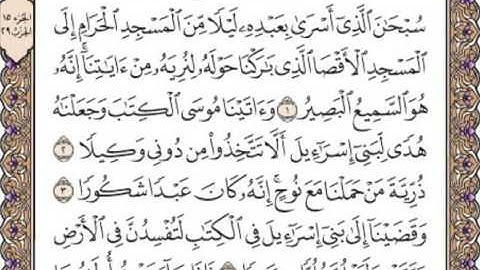 الجزء ١٥
الحزب ٢٩
سُبْحَانَ الَّذِي أَسْرَىٰ بِعَبْدِهِ لَيْلًا مِّنَ الْمَسْجِدِ الْحَرَامِ إِلَى
الْمَسْجِدِ الْأَقْصَا الَّذِي بَارَكْنَا حَوْلَهُ لِنُرِيَهُ مِنْ ءَايَاتِنَا إِنَّهُ
هُوَ السَّمِيعُ الْبَصِيرُ ١ وَءَاتَيْنَا مُوسَى الْكِتَابَ وَجَعَلْنَاهُ
هُدًى لِّبَنِي إِسْرَاءِيلَ أَلَّا تَتَّخِذُوا مِن دُونِي وَكِيلًا ٢
ذُرِّيَّةَ مَنْ حَمَلْنَا مَعَ نُوحٍ إِنَّهُ كَانَ عَبْدًا شَكُورًا ٣
وَقَضَيْنَا إِلَىٰ بَنِي إِسْرَاءِيلَ فِي الْكِتَابِ لَتُفْسِدُنَّ فِي الْأَرْضِ